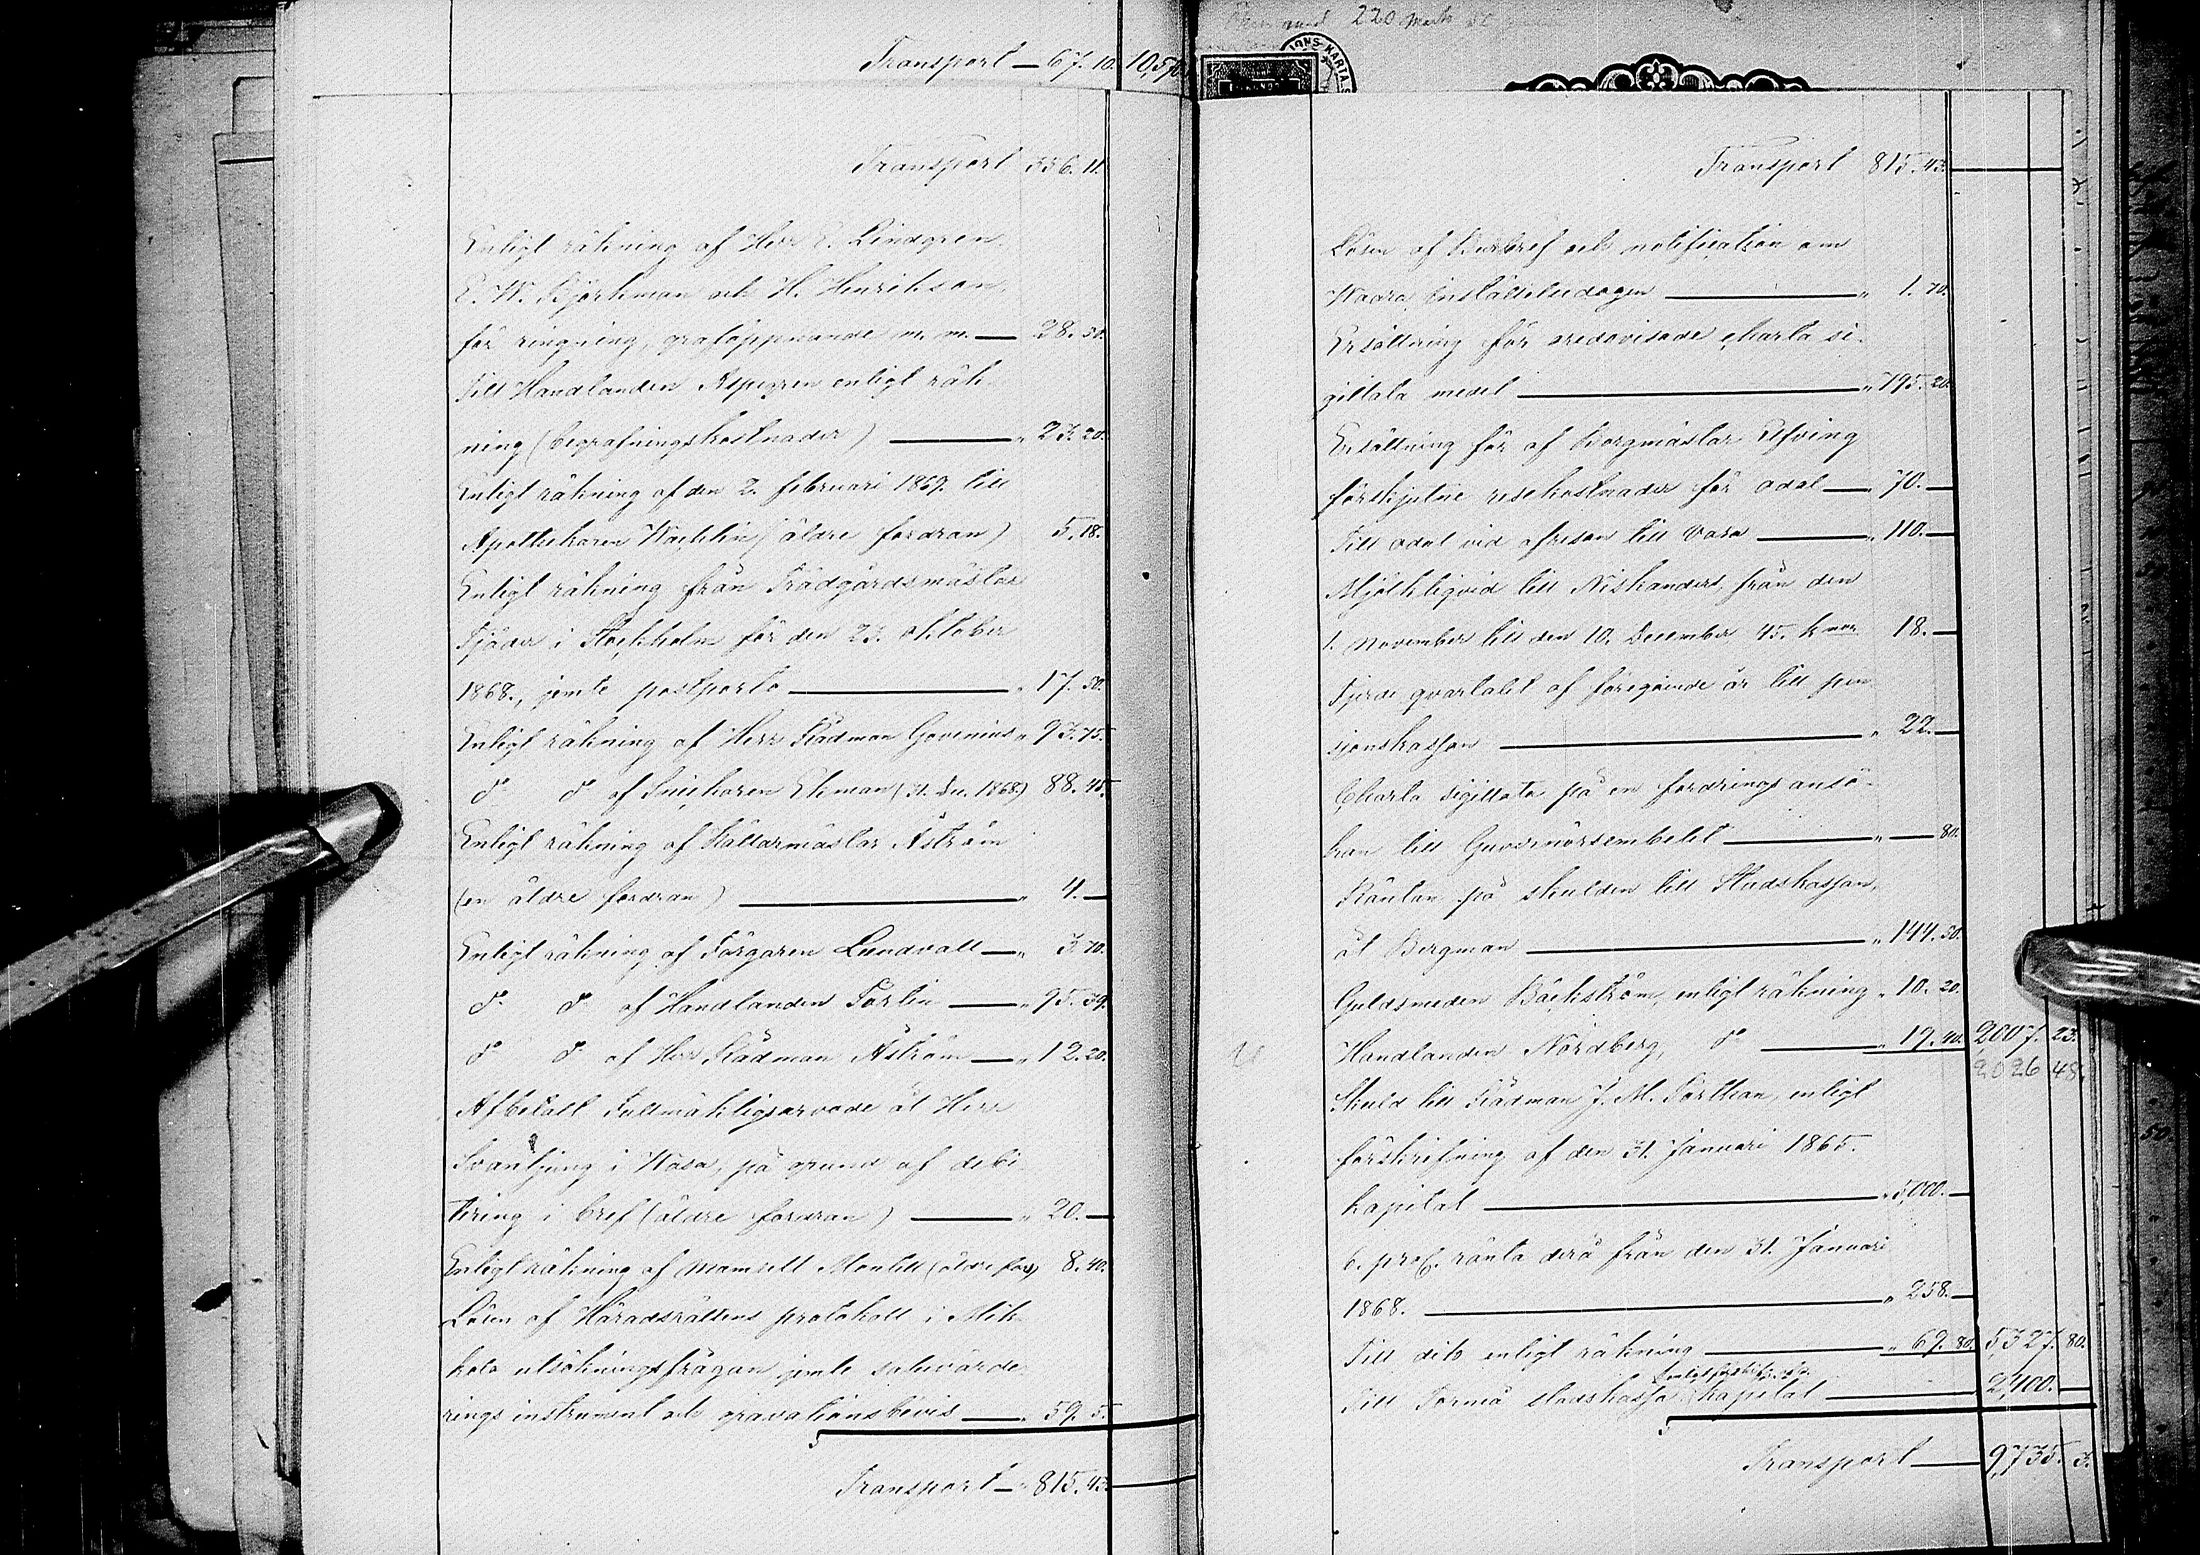 Transport — 67. 10. 10,570
Transport 336. 11.
Enligt räkning af Herr E. Lindgren,
E. W. Björkman och H. Henrikson,
för ringning, graföppnande m. m. — 28. 50.
Till Handlanden Aspegren enligt räk-
ning (begrafningskostnader) — „ 23. 20.
Enligt räkning af den 2. februari 1869. till
Apothekaren Wacklin (äldre fordran) 5. 18.
Enligt räkning från Trädgårdsmästar
Tjäder i Stockholm för den 23. oktober
1868., jemte postporto — „ 17. 50.
Enligt räkning af Herr Rådman Govenius „ 93. 75.
d:o d:o af Snickaren Ekman (31. Dec. 1868) 88. 45.
Enligt räkning af Källarmästar Åström
(en äldre fordran) — „ 4. —
Enligt räkning af Färgaren Lundvall — „ 3. 70.
d:o d:o af Handlanden Forlin — „ 95. 39.
d:o d:o af Herr Rådman Åström — „ 12. 20.
Afbetalt Fullmäktigsarvode åt Herr
Svanljung i Wasa, på grund af debi-
tering i bref (äldre fordran) — „ 20. —
Enligt räkning af Mamsell Montell (äldre ford) 8. 40.
Lösen af Häradsrättens protokoll i Mik-
kola utsökningsfrågan jemte solvärde-
rings instrument och gravationsbevis — „ 59. 5.
Transport — „ 815. 43.
220 mark 50
Transport 815. 43.
Lösen af Burbref och notification om
Waara Inställelsedagen — „ 1. 70.
Ersättning för oredovisade charta si-
gillata medel — „ 795. 20.
Ersättning för af Borgmästar Elfving
förskjutne resekostnader för Adol — „ 70. —
Till Adol vid afresan till Vasa — „ 110. —
Mjölkliqvid till Niskanders, från den
1. November till den 10. December 45. knor 18. —
Fjerde qvartalet af föregående år till pen-
sjonskassan — „ 22. —
Charta sigillata på en fordringsansö-
kan till Guvernörsembetet — „ — 80.
Räntan på skulden till Stadskassan,
åt Bergman — „ 144. 50.
Guldsmeden Bäckström, enligt räkning „ 10. 20.
Handlanden Nordberg, d:o — „ 19. 40. 2007. 23.
2026 48.
Skuld till Rådman J. M. Forthan, enligt
förskrifning af den 31. Januari 1865.
kapital — „ 5,000. —
6. proc. ränta derå från den 31. Januari
1868. — „ 258. —
Till dito enligt räkning — „ 69. 80. 5,327. 80.
Till Torneå stadskassa kapital — 2,400. —
Transport — 9,735. 3.